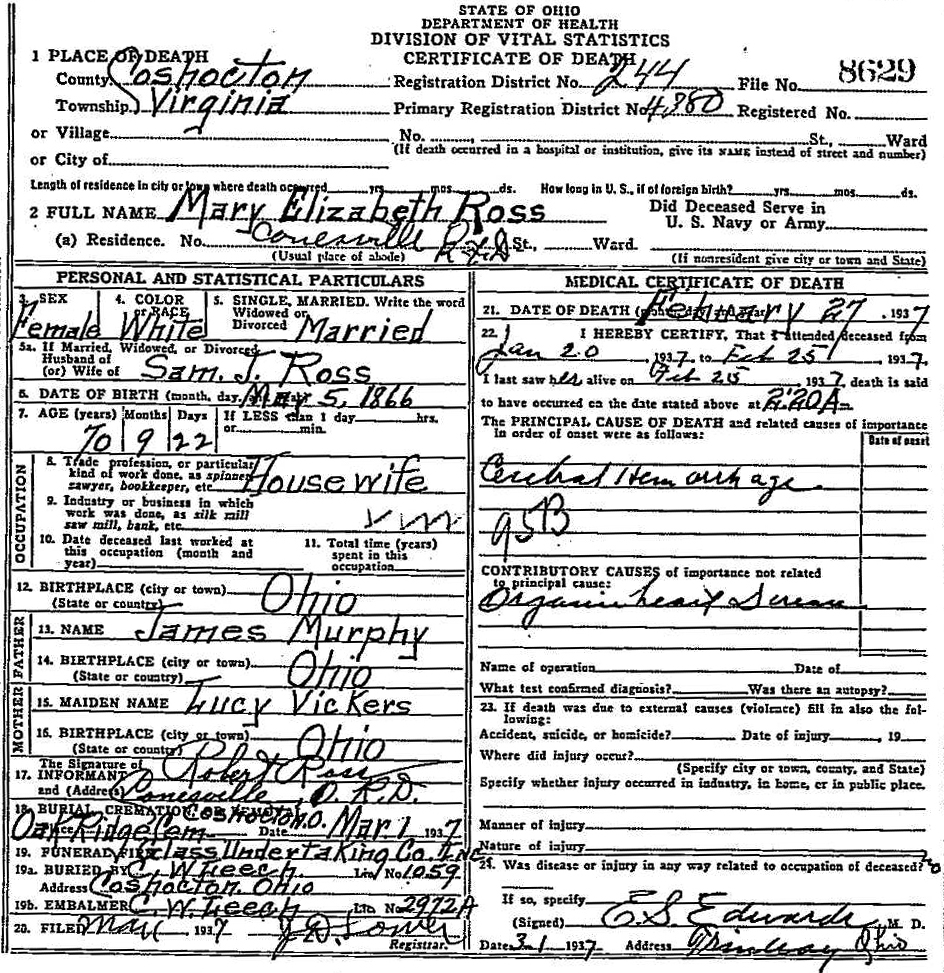 STATE OF OHIO
DEPARTMENT OF HEALTH
DIVISION OF VITAL STATISTICS
CERTIFICATE OF DEATH
1 PLACE OF DEATH
County Coshocton Registration District No. 244 File No. 8629
Township Virginia Primary Registration District No. 4380 Registered No.
or Village No. St., Ward
or City of (If death occurred in a hospital or institution, give its NAME instead of street and number)
Length of residence in city or town where death occurred yrs. mos. ds. How long in U. S., if of foreign birth? yrs. mos. ds.
2 FULL NAME Mary Elizabeth Ross Did Deceased Serve in U. S. Navy or Army
(a) Residence. No. Conesville R.F.D. St., Ward.
(Usual place of abode) (If nonresident give city or town and State)
PERSONAL AND STATISTICAL PARTICULARS
3. SEX Female
4. COLOR or RACE White
5. SINGLE, MARRIED. Write the word Widowed or Divorced Married
5a. If Married, Widowed, or Divorced
Husband of
(or) Wife of Sam. J. Ross
6. DATE OF BIRTH (month, day, May 5, 1866
7. AGE (years) Months Days If LESS than 1 day hrs.
or min.
70 9 22
OCCUPATION
8. Trade profession, or particular
kind of work done, as spinner
sawyer, bookkeeper, etc. Housewife
9. Industry or business in which
work was done, as silk mill
saw mill, bank, etc.
10. Date deceased last worked at
this occupation (month and
year)
11. Total time (years)
spent in this
occupation
12. BIRTHPLACE (city or town)
(State or country) Ohio
FATHER
13. NAME James Murphy
14. BIRTHPLACE (city or town)
(State or country) Ohio
MOTHER
15. MAIDEN NAME Lucy Vickers
16. BIRTHPLACE (city or town)
(State or country) Ohio
The Signature of
17. INFORMANT Robert Ross
and (Address) Conesville, O. R.D.
18. BURIAL, CREMATION OR REMOVAL
Place Oak Ridge Cem Coshocton O. Date Mar 1 1937
19. FUNERAL FIRM Glass Undertaking Co. Inc
19a. BURIED BY C. W. Leech Lic No. 1059
Address Coshocton, Ohio
19b. EMBALMER C. W. Leech Lic No. 2972A
20. FILED Mar 1 1937
Registrar.
MEDICAL CERTIFICATE OF DEATH
21. DATE OF DEATH February 27, 1937
22. I HEREBY CERTIFY, That I attended deceased from
Jan 20 1937, to Feb 25 1937.
I last saw her alive on Feb 25 1937, death is said
to have occurred on the date stated above at 2:20 A
The PRINCIPAL CAUSE OF DEATH and related causes of importance
in order of onset were as follows:
Date of onset
Cerebral Hemorrhage
95B
CONTRIBUTORY CAUSES of importance not related
to principal cause:
Organic heart disease
Name of operation Date of
What test confirmed diagnosis? Was there an autopsy?
23. If death was due to external causes (violence) fill in also the fol-
lowing:
Accident, suicide, or homicide? Date of injury , 19
Where did injury occur?
(Specify city or town, county, and State)
Specify whether injury occurred in industry, in home, or in public place.
Manner of injury
Nature of injury
24. Was disease or injury in any way related to occupation of deceased? no
If so, specify
(Signed) E. S. Edwards M. D.
Date 3-1 1937 Address Trinway Ohio